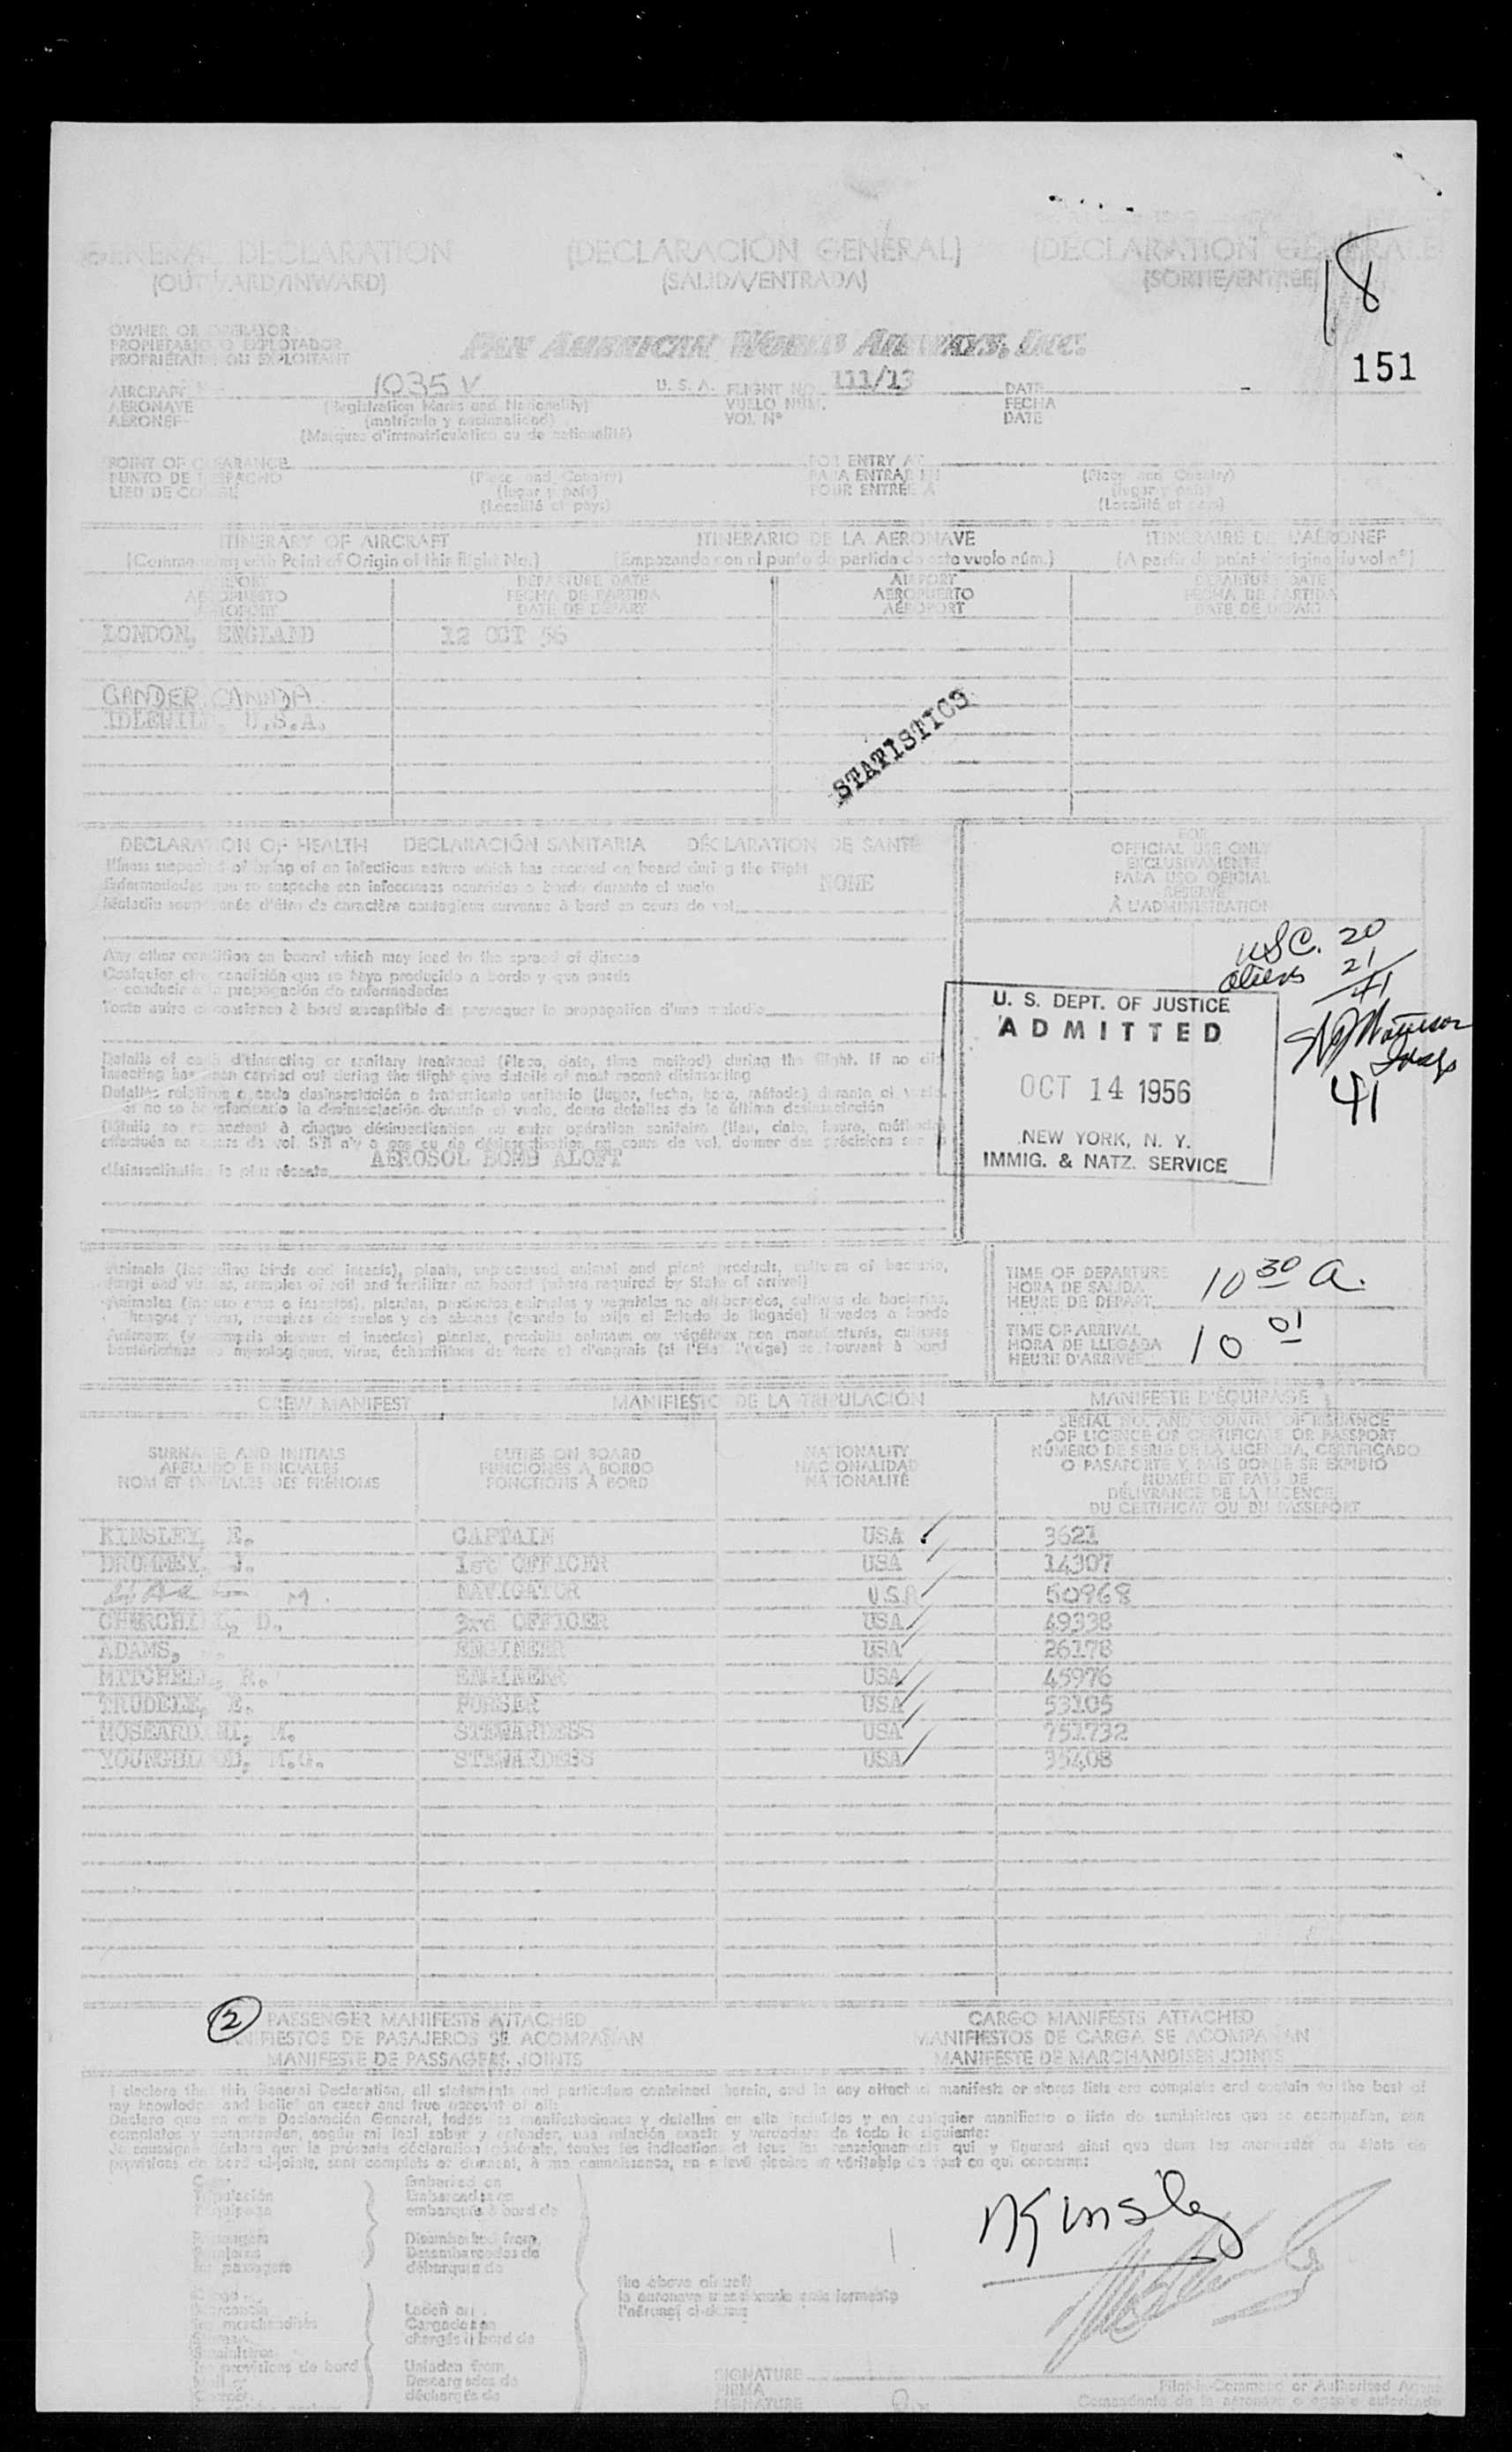 GENERAL DECLARATION (DECLARACIÓN GENERAL) (DÉCLARATION GÉNÉRALE)
(OUTWARD/INWARD) (SALIDA/ENTRADA) (SORTIE/ENTRÉE)
18
151
OWNER OR OPERATOR
PROPIETARIO O EXPLOTADOR
PROPRIÉTAIRE OU EXPLOITANT
PAN AMERICAN WORLD AIRWAYS, INC.
AIRCRAFT 1035 V U. S. A. FLIGHT NO. 111/13 DATE
AERONAVE (Registration Marks and Nationality) VUELO NÚM. FECHA
AÉRONEF (matrícula y nacionalidad) VOL Nº DATE
(Marques d'immatriculation ou de nationalité)
POINT OF CLEARANCE FOR ENTRY AT
PUNTO DE DESPACHO (Place and Country) PARA ENTRAR EN (Place and Country)
LIEU DE CONGÉ (lugar y país) POUR ENTRÉE À (lugar y país)
(Localité et pays) (Localité et pays)
ITINERARY OF AIRCRAFT ITINERARIO DE LA AERONAVE ITINERAIRE DE L'AÉRONEF
(Commencing with Point of Origin of this flight No.) (Empezando con el punto de partida de este vuelo núm.) (A partir du point d'origine du vol nº)
AIRPORT DEPARTURE DATE AIRPORT DEPARTURE DATE
AEROPUERTO FECHA DE PARTIDA AEROPUERTO FECHA DE PARTIDA
AÉROPORT DATE DE DÉPART AÉROPORT DATE DE DÉPART
LONDON, ENGLAND 12 OCT 56
GANDER, CANADA
IDLEWILD, U.S.A.
STATISTICS
DECLARATION OF HEALTH DECLARACIÓN SANITARIA DÉCLARATION DE SANTÉ
Illness suspected of being of an infectious nature which has occured on board during the flight
Enfermedades que se sospeche son infecciosas ocurridas a bordo durante el vuelo NONE
Maladie soupçonnée d'être de caractère contagieux survenue à bord en cours de vol
FOR
OFFICIAL USE ONLY
EXCLUSIVAMENTE
PARA USO OFICIAL
RÉSERVÉ
À L'ADMINISTRATION
Any other condition on board which may lead to the spread of disease
Cualquier otra condición que se haya producido a bordo y que pueda
conducir a la propagación de enfermedades
Toute autre circonstance à bord susceptible de provoquer la propagation d'une maladie
USC. 20
aliens 21
41
41
U. S. DEPT. OF JUSTICE
ADMITTED
OCT 14 1956
NEW YORK, N. Y.
IMMIG. & NATZ. SERVICE
Details of each disinsecting or sanitary treatment (Place, date, time method) during the flight. If no dis-
insecting has been carried out during the flight give details of most recent disinsecting
Detalles relativos a cada desinsectación o tratamiento sanitario (lugar, fecha, hora, método) durante el vuelo.
Si no se ha efectuado la desinsectación durante el vuelo, dense detalles de la última desinsectación
Détails se rapportant à chaque désinsectisation ou autre opération sanitaire (lieu, date, heure, méthode)
effectuée en cours de vol. S'il n'y a pas eu de désinsectisation en cours de vol, donner des précisions sur la
désinsectisation la plus récente AEROSOL BOMB ALOFT
Animals (including birds and insects), plants, unprocessed animal and plant products, cultures of bacteria,
fungi and viruses, samples of soil and fertilizer on board (where required by State of arrival)
Animales (incluso aves o insectos), plantas, productos animales y vegetales no elaborados, cultivos de bacterias,
hongos y virus, muestras de suelos y de abonos (cuando lo exija el Estado de llegada) llevados a bordo
Animaux (y compris oiseaux et insectes) plantes, produits animaux ou végétaux non manufacturés, cultures
bactériennes ou mycologiques, virus, échantillons de terre et d'engrais (si l'État l'exige) se trouvant à bord
TIME OF DEPARTURE
HORA DE SALIDA 10 30 A.
HEURE DE DÉPART
TIME OF ARRIVAL
HORA DE LLEGADA 10 01
HEURE D'ARRIVÉE
CREW MANIFEST MANIFIESTO DE LA TRIPULACIÓN MANIFESTE D'ÉQUIPAGE
SURNAME AND INITIALS DUTIES ON BOARD NATIONALITY SERIAL NO. AND COUNTRY OF ISSUANCE
APELLIDO E INICIALES FUNCIONES A BORDO NACIONALIDAD OF LICENCE OR CERTIFICATE OR PASSPORT
NOM ET INITIALES DES PRÉNOMS FONCTIONS À BORD NATIONALITÉ NÚMERO DE SERIE DE LA LICENCIA, CERTIFICADO
O PASAPORTE Y PAÍS DONDE SE EXPIDIÓ
NUMÉRO ET PAYS DE
DÉLIVRANCE DE LA LICENCE
DU CERTIFICAT OU DU PASSEPORT
KINSLEY, E. CAPTAIN USA 3621
DRUMMEY, J. 1st OFFICER USA 14307
M. NAVIGATOR U.S.A 50968
CHURCHILL, D. 3rd OFFICER USA 49338
ADAMS, ENGINEER USA 26178
MITCHELL, R. ENGINEER USA 45976
TRUDELE, E. PURSER USA 53105
M. STEWARDESS USA 751732
YOUNGBLOOD, M.G. STEWARDESS USA 35408
2 PASSENGER MANIFESTS ATTACHED CARGO MANIFESTS ATTACHED
MANIFIESTOS DE PASAJEROS SE ACOMPAÑAN MANIFIESTOS DE CARGA SE ACOMPAÑAN
MANIFESTE DE PASSAGERS JOINTS MANIFESTE DE MARCHANDISES JOINTS
I declare that this General Declaration, all statements and particulars contained herein, and in any attached manifests or stores lists are complete and contain to the best of
my knowledge and belief an exact and true account of all:
Declaro que en esta Declaración General, todas las manifestaciones y detalles en ella incluidos y en cualquier manifiesto o lista de suministros que se acompañan, son
completos y comprenden, según mi leal saber y entender, una relación exacta y verdadera de todo lo siguiente:
Je soussigné déclare que la présente déclaration générale, toutes les indications et tous les renseignements qui y figurent ainsi que dans les manifestes ou états de
provisions de bord ci-joints, sont complets et donnent, à ma connaissance, un relevé sincère et véritable de tout ce qui concerne:
Crew Embarked on
Tripulación Embarcados en
Équipage embarqués à bord de
Passengers Disembarked from
Pasajeros Desembarcados de
les passagers débarqués de
the above aircraft
la aeronave mencionada anteriormente
l'aéronef ci-dessus
Cargo Laden on
Mercancía Cargados en
les marchandises chargés à bord de
Stores
Suministros
les provisions de bord Unladen from
Descargados de
déchargés de
Kinsley
SIGNATURE
FIRMA Pilot-in-Command or Authorised Agent
SIGNATURE Comandante de la aeronave o agente autorizado